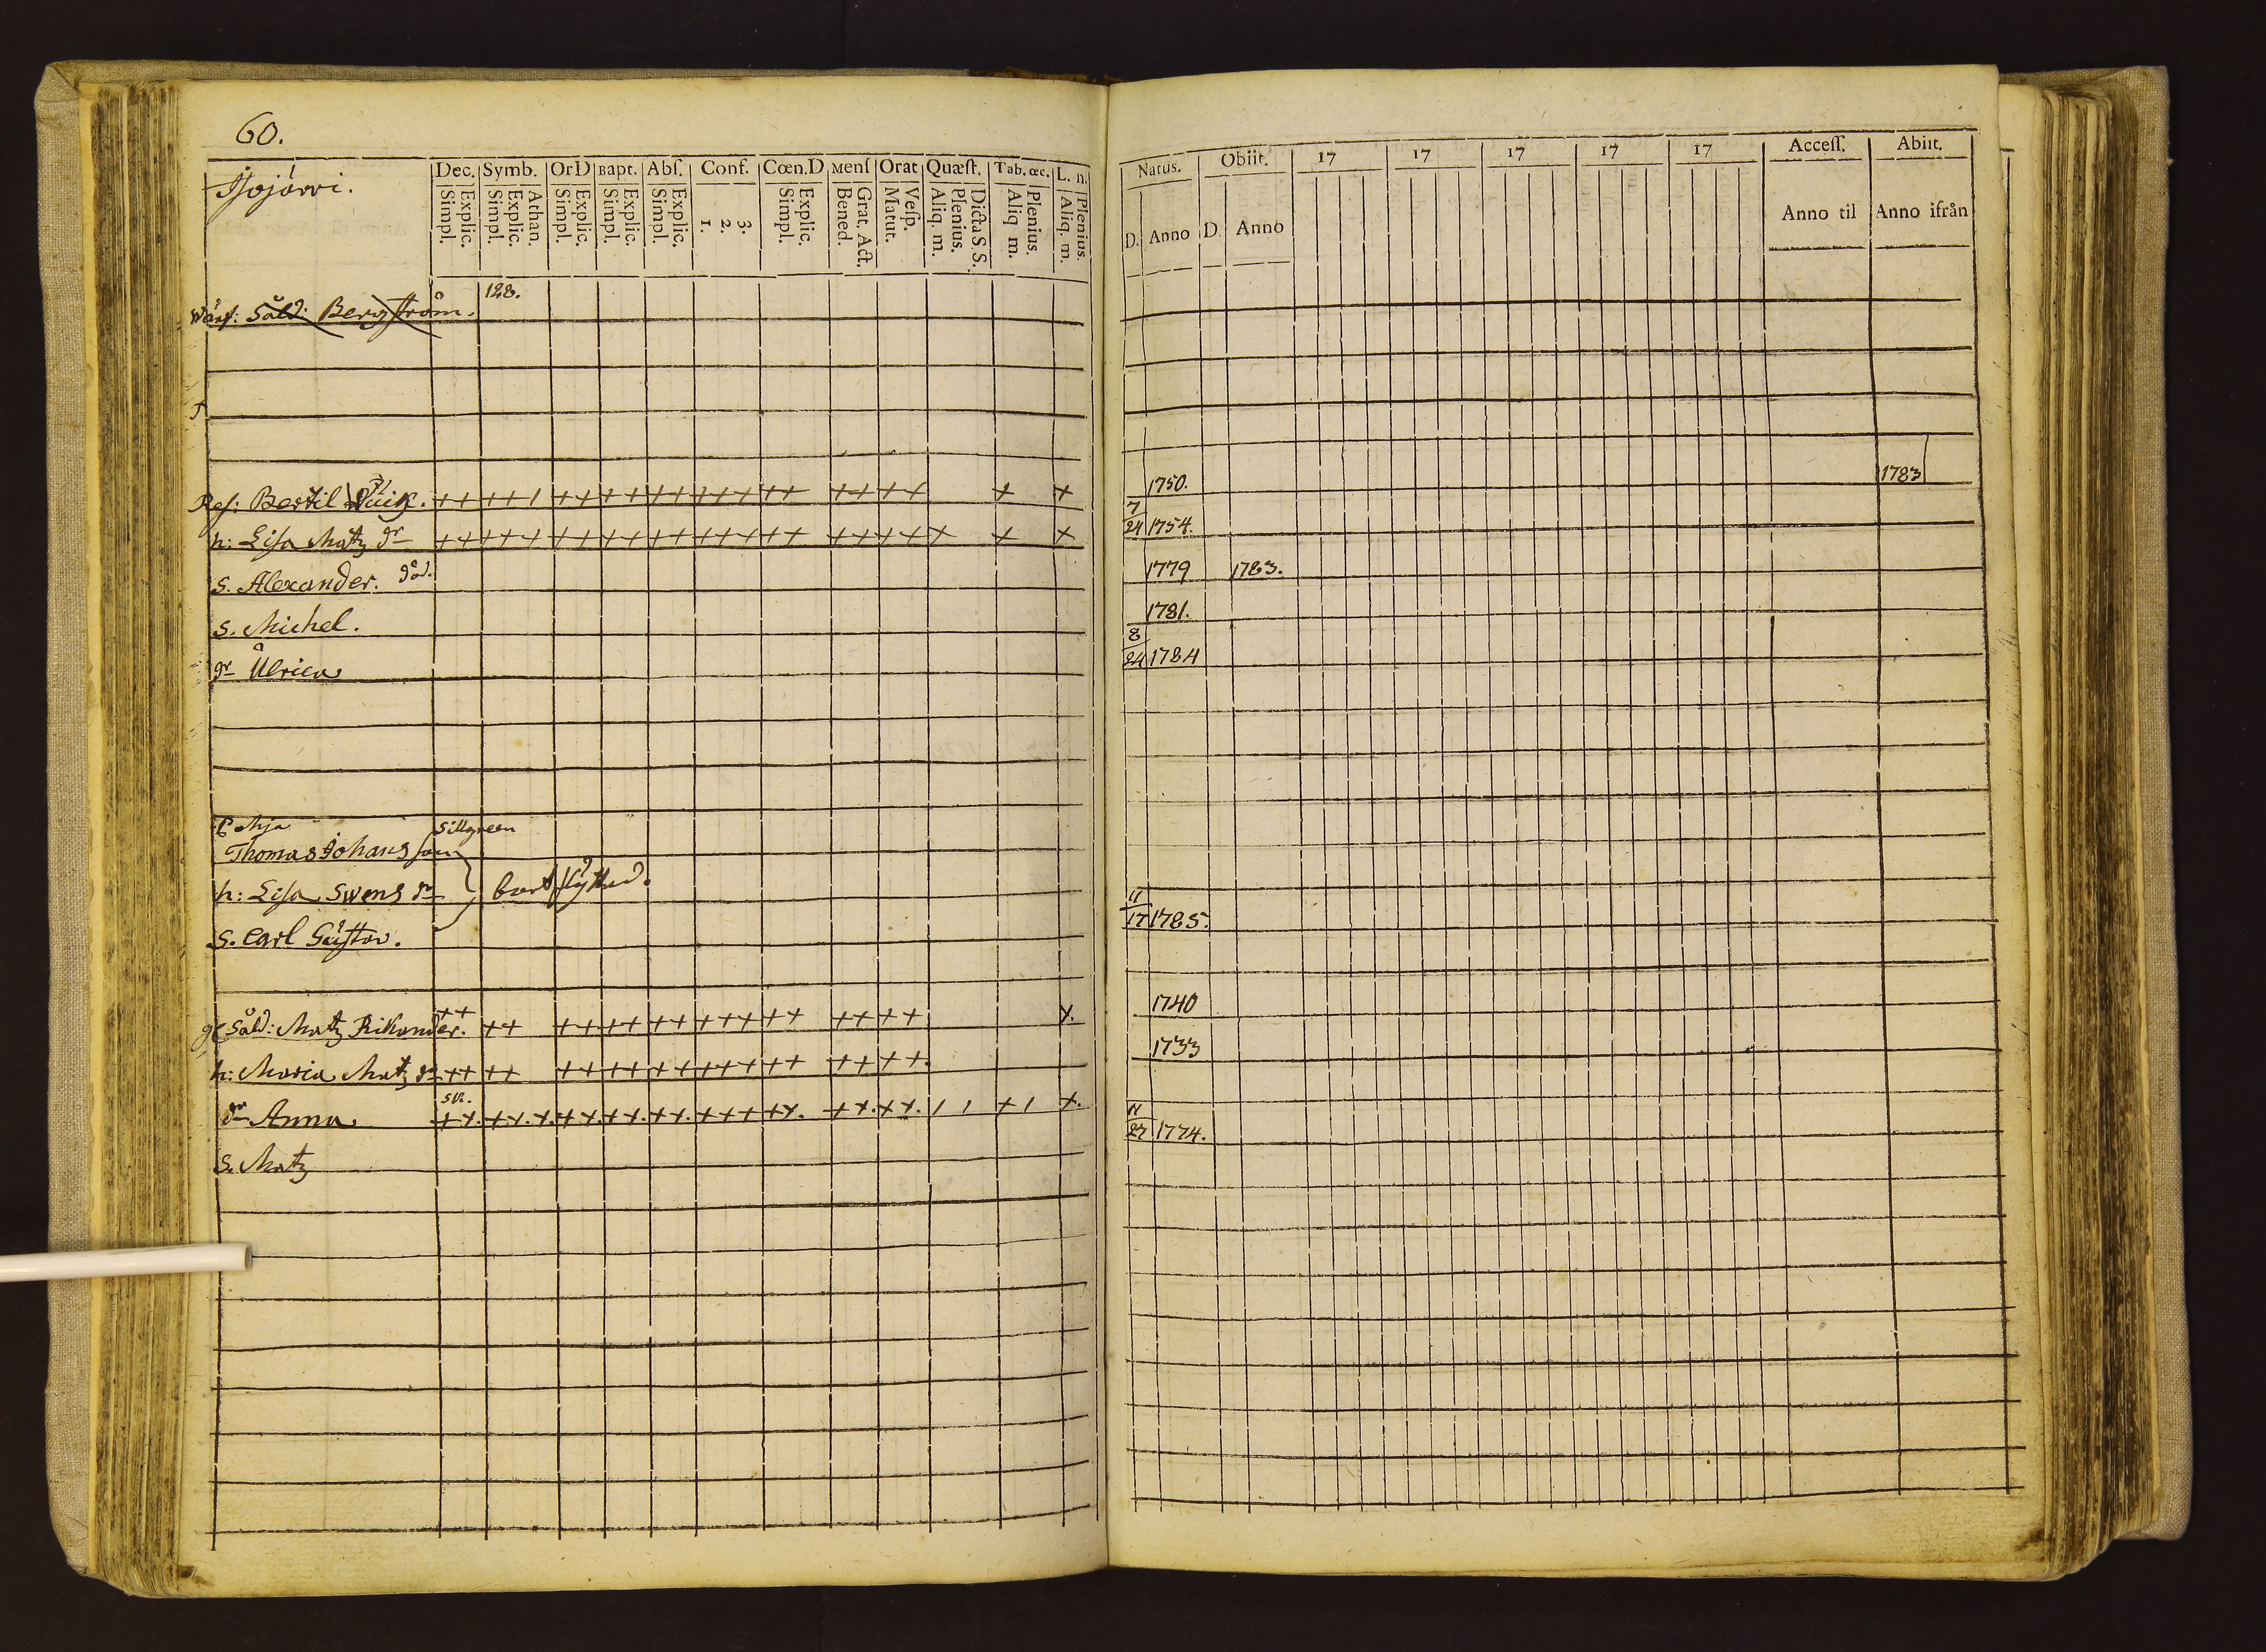 60.
Isojärvi.
Dec. Symb. Or D Bapt. Abſ. Conf. Cœn.D Menſ Orat Quæſt. Tab. œc. L. n.
Simpl. Explic. Simpl. Explic. Athan. Simpl. Explic. Simpl. Explic. Simpl. Explic. 1. 2. 3. Simpl. Explic. Bened. Grat. Act. Matut. Veſp. Aliq. m. Plenius. Dicta S. S. Aliq m. Plenius. Aliq. m. Plenius.
Wärf: Såld: Bergström. 128.
Ref: Bertil
h: Lisa Matz dr
S. Alexander. död.
S. Michel.
dr Ulrica
Sillgreen
Thomas Johansson
h: Lisa Swens dr bortflyttad.
S. Carl Gustav.
gl Såld: Matz Rikander.
h: Maria Matz dr
SR.
dr Anna.
S. Matz
Natus. Obiit. 17 17 17 17 17 Acceſſ. Abiit.
D. Anno D. Anno Anno til Anno ifrån
1750. 1783
7
24 1754.
1779 1783.
1781.
8
24 1784
11
17 1785.
1740
1733
11
27 1774.